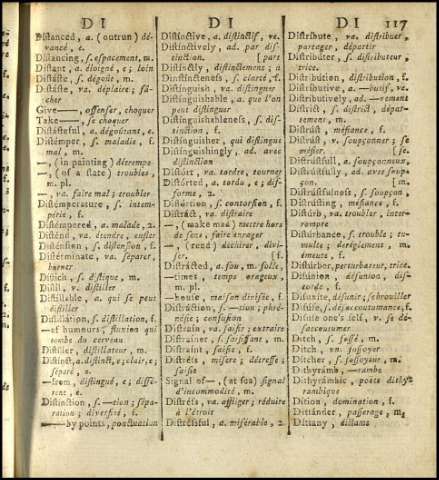 DI
DI
DI 117
Distanced, a. (outrun) dé-
vancé, e.
Distancing, s. espacement, m.
Distant, a. éloigné, e; loin
Distáste, s. dégoût, m.
Distáste, va. déplaire; fâ-
cher
Give——, offenser, choquer
Take——, se choquer
Distásteful, a. dégoûtant, e.
Distémper, s. maladie, f.
mal, m.
—, (in painting) détrempe
—, (of a state) troubles,
m. pl.
—, va. faire mal; troubler
Distémperature, s. intem-
périe, f.
Distémpered, a. malade, 2.
Disténd, va. étendre, enfler
Disténsion, s. distension, f.
Distérminate, va. séparer,
borner
Distich, s. distique, m.
Distil, v. distiller
Distillable, a. qui se peut
distiller
Distillation, s. distillation, f.
—of humours, fluxion qui
tombe du cerveau
Distiller, distillateur, m.
Distinct, a. distinct, e; clair, e;
séparé, e.
—from, distingué, e; diffé-
rent, e.
Distinction, s. —tion; sépa-
ration; diversité, f.
—by points, ponctuation
Distinctive, a. distinctif, ve.
Distinctively, ad. par dis-
tinction. [ part
Distinctly, distinctement; à
Distincteness, s. clarté, f.
Distinguish, va. distinguer
Distinguishable, a. que l'on
peut distinguer
Distinguishableness, s. dis-
tinction, f.
Distinguisher, qui distingue
Distinguishingly, ad. avec
distinction
Distórt, va. tordre, tourner
Distórted, a. tordu, e; dif-
forme, 2.
Distórtion, s. contorsion, f.
Distráct, va. distraire
—, (make mad) mettre hors
de sens, faire enrager
—, (rend) déchirer, divi-
ser. [ f.
Distrácted, a. fou, m. folle,
—times, temps orageux,
m. pl.
—house, maison divisée, f.
Distráction, s. —tion; phré-
nésie; confusion
Distrain, va. saisir; extraire
Distrainer, s. saisissant, m.
Distraint, saisie, f.
Distréss, misère; détresse;
saisie
Signal of—, (at sea) signal
d'incommodité, m.
Distréss, va. affliger; réduire
à l'étroit
Distréssful, a. misérable, 2
Distribute, va. distribuer,
partager, départir
Distributer, s. distributeur,
trice.
Distribútion, distribution, f.
Distributive, a. —butif, ve.
Distributively, ad. —vement
District, s. district, dépar-
tement, m.
Distrúst, méfiance, f.
Distrúst, v. soupçonner; se
méfier. [e.
Distrústfull, a. soupçonneux,
Distrústfully, ad. avec soup-
çon. [m.
Distrústfulness, s. soupçon,
Distrústing, méfiance, f.
Distúrb, va. troubler; inter-
rompre
Distúrbance, s. trouble; tu-
multe; dérèglement, m.
émeute, f.
Distúrber, perturbateur, trice.
Disúnion, désunion, dis-
corde, f.
Disuníte, désunir; brouiller
Disúse, s. désaccoutumance, f.
Disúse one's self, v. se dé-
saccoutumer
Ditch, s. fossé, m.
Ditch, va. fossoyer
Ditcher, s. fossoyeur, m.
Dithyrámb, —rambe
Dithyrámbic, poète dithy-
rambique
Dítion, domination, f.
Dittánder, passerage, m.
Dittany, dictame